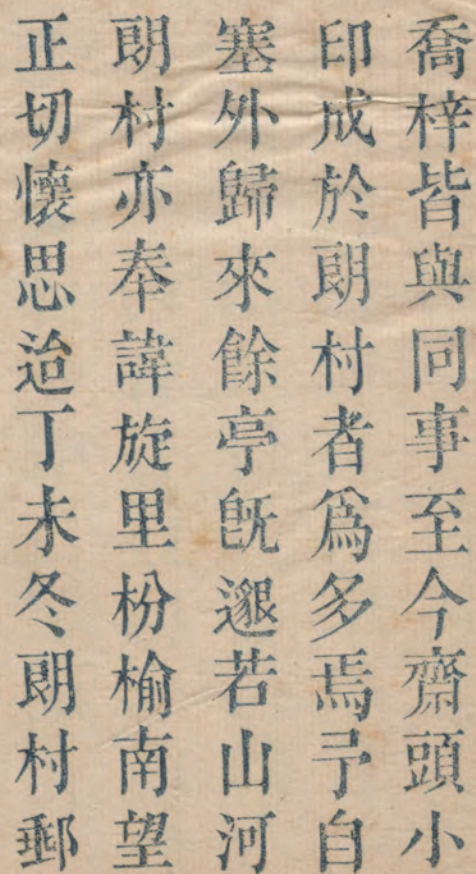 喬梓皆與同事至今齋頭小
印成於朗村者爲多焉予自
塞外歸來餘亭旣邈若山河
朗村亦奉諱旋里枌榆南望
正切懷思迨丁未冬朗村郵